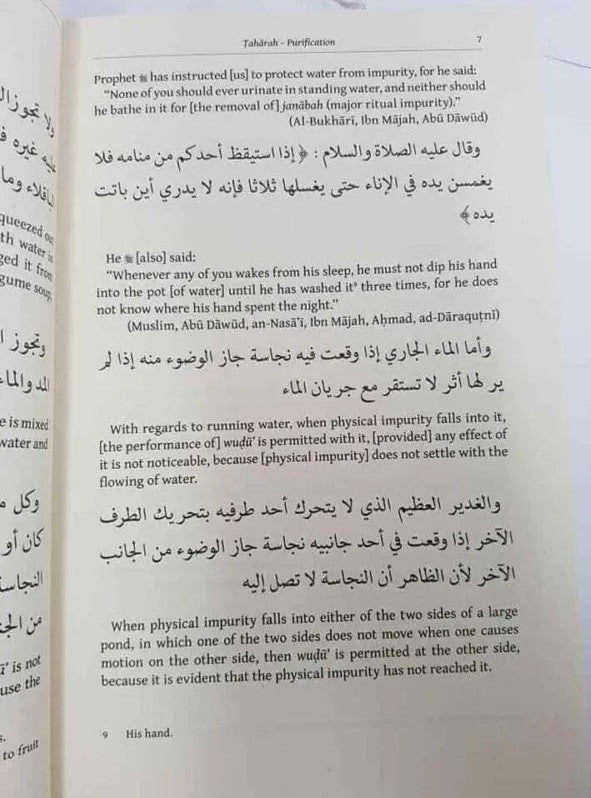 ولا تجوز
عليه غيره
وما
queezed
th water is
ged it from
gume soup,
وتجوز
e is mixed
water and
وكل
كان أو
من
ū' is not
use the
s.
to fruit
Ṭahārah – Purification
7
Prophet ﷺ has instructed [us] to protect water from impurity, for he said:
"None of you should ever urinate in standing water, and neither should
he bathe in it for [the removal of] janābah (major ritual impurity)."
(Al-Bukhārī, Ibn Mājah, Abū Dāwūd)
وقال عليه الصلاة والسلام : ﴿ إذا استيقظ أحدكم من منامه فلا
يغمسن يده في الإناء حتى يغسلها ثلاثا فإنه لا يدري أين باتت
يده ﴾
He ﷺ [also] said:
"Whenever any of you wakes from his sleep, he must not dip his hand
into the pot [of water] until he has washed it⁹ three times, for he does
not know where his hand spent the night."
(Muslim, Abū Dāwūd, an-Nasā'ī, Ibn Mājah, Aḥmad, ad-Dāraquṭnī)
وأما الماء الجاري إذا وقعت فيه نجاسة جاز الوضوء منه إذا لم
ير لها أثر لا تستقر مع جريان الماء
With regards to running water, when physical impurity falls into it,
[the performance of] wuḍū' is permitted with it, [provided] any effect of
it is not noticeable, because [physical impurity] does not settle with the
flowing of water.
والغدير العظيم الذي لا يتحرك أحد طرفيه بتحريك الطرف
الآخر إذا وقعت في أحد جانبيه نجاسة جاز الوضوء من الجانب
الآخر لأن الظاهر أن النجاسة لا تصل إليه
When physical impurity falls into either of the two sides of a large
pond, in which one of the two sides does not move when one causes
motion on the other side, then wuḍū' is permitted at the other side,
because it is evident that the physical impurity has not reached it.
9 His hand.